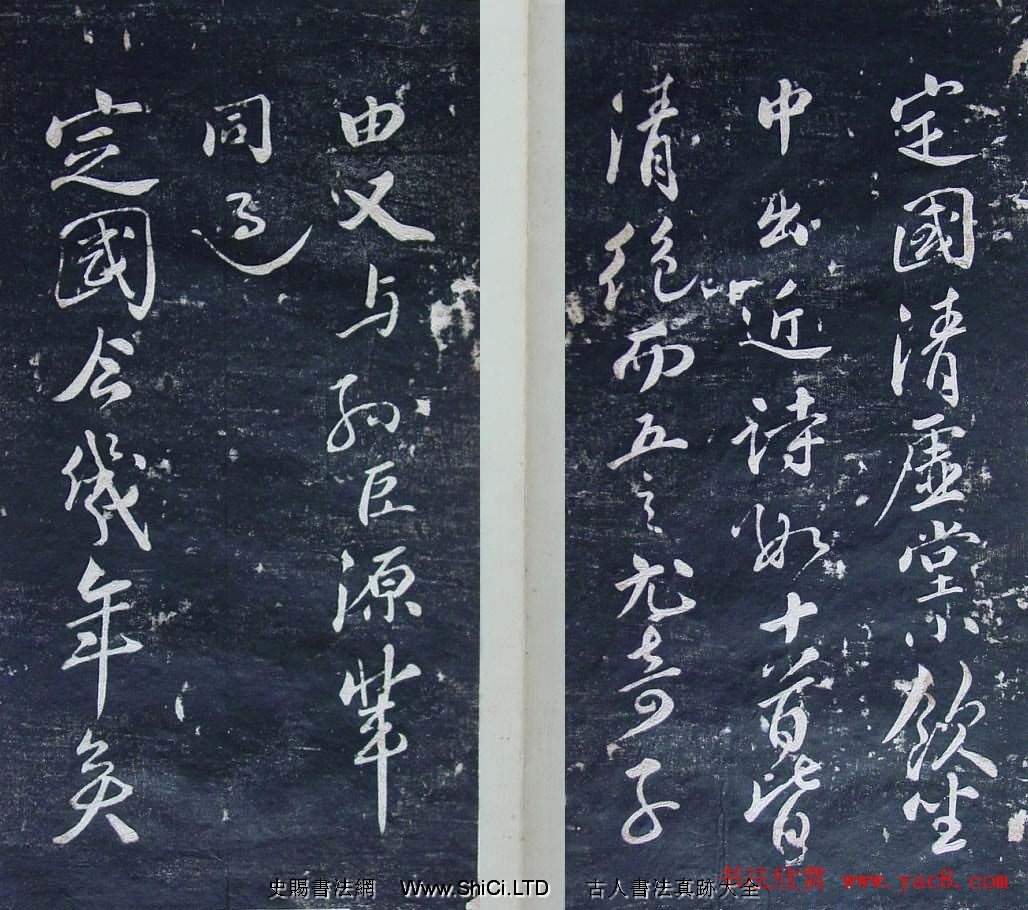 定國清虛堂小飲坐
中出近詩數十首皆
清絕而五言尤奇子
由又与孫巨源輩
同過
定國今幾年矣
史賜書法網 Www.ShiCi.LTD 古人書法真跡大全
书法欣赏 www.yac8.com